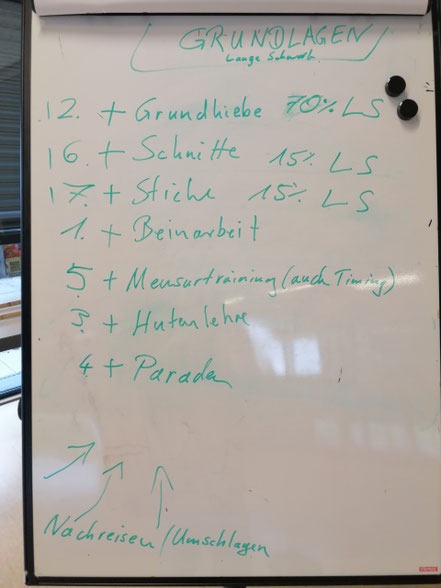 GRUNDLAGEN
Langes Schwert
12. + Grundhiebe 70% LS
16. + Schnitte 15% LS
17. + Stiche 15% LS
1. + Beinarbeit
5 + Mensurtraining (auch Timing)
3. + Hutenlehre
4 + Paraden
Nachreisen / Umschlagen